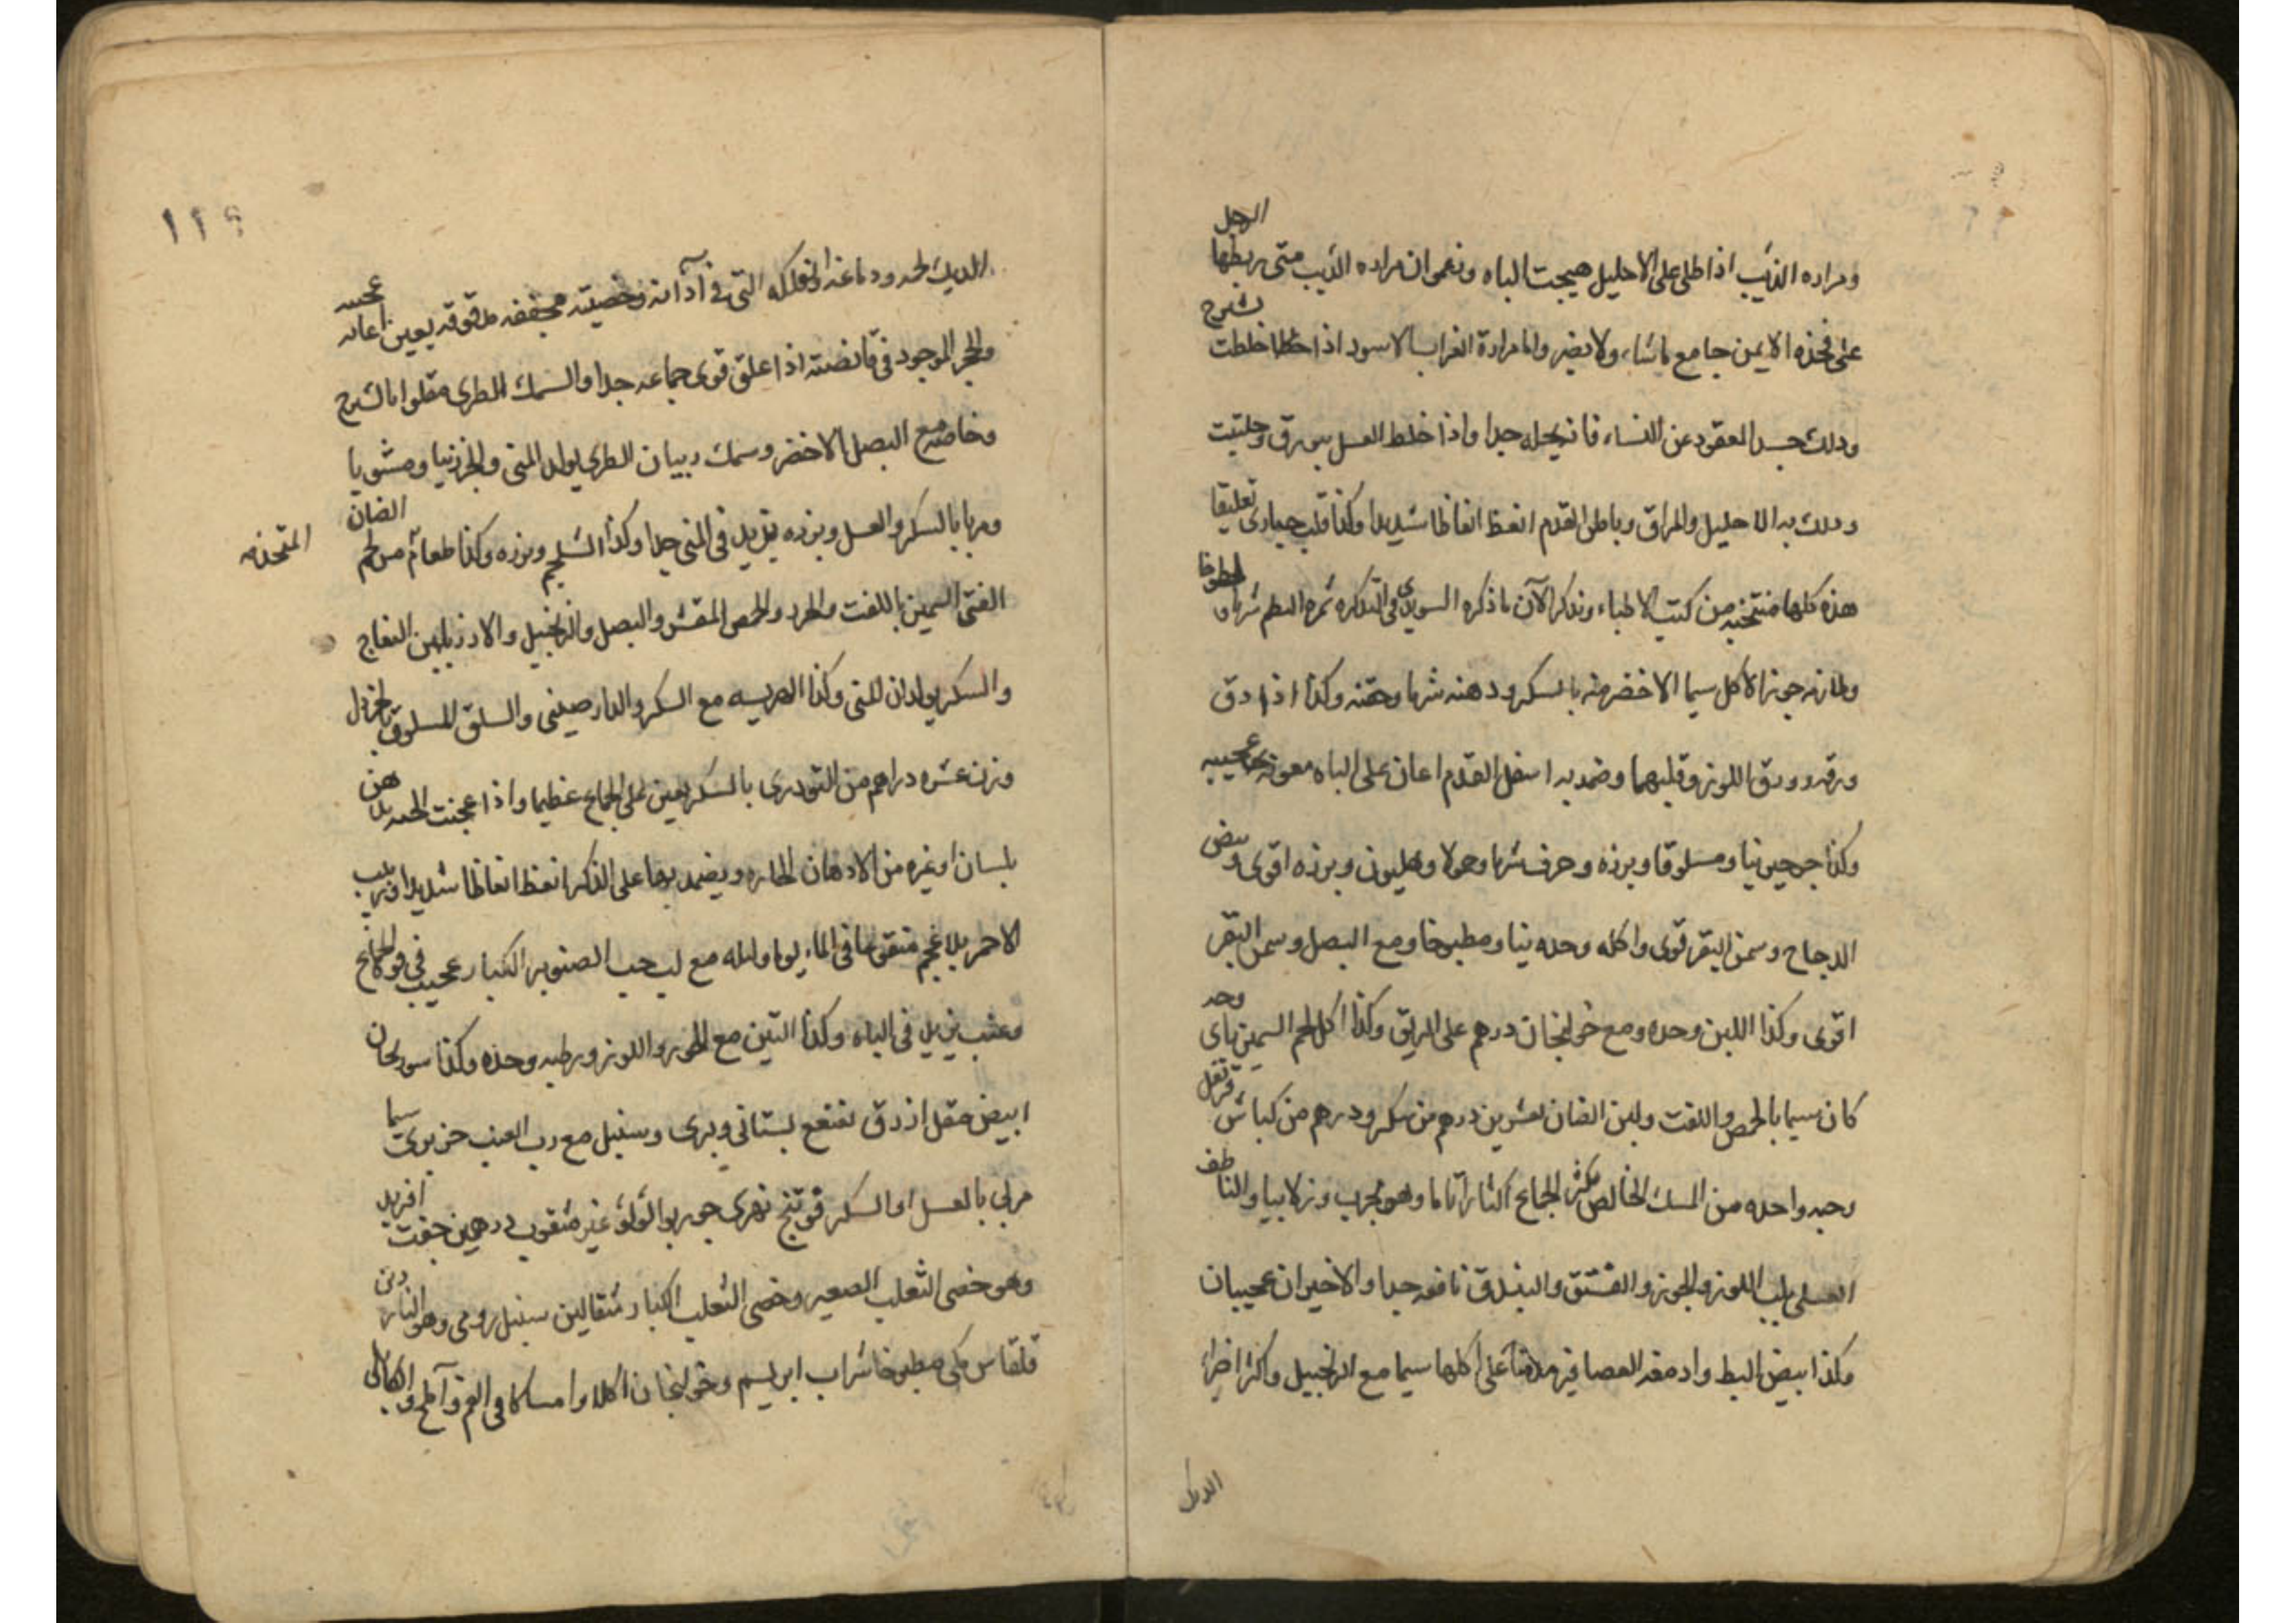 ومراره الذيب اذا طلى على الاحليل هيجت الباه وزعموا ان مراره الذيب متى ربطها الرجل
على فخذه الايمن جامع ما شاء ولا يضر واما مرارة الغراب الاسود اذا خلطت بشيرج
ودلك جسد المعقود عن النساء فانه يحله جدا واذا خلط العسل ببورق وحلتيت
ودلك به الاحليل والمراق وباطن القدم انعظ انعاظا شديدا وكذا قلب حبارى تعليقا
هذه كلها منتخبه من كتب الاطباء ونذكر الآن ما ذكره السويدي في التذكره ثمره البطم شربا و
وملازمه جوز الاكل سيما الاخضر منه بالسكر ودهنه شربا وحقنه وكذا اذا دق
ورقه وورق اللوز وقلبهما وضمد به اسفل القدم اعان على الباه معونة عجيبه
وكذا جرجير نيا ومسلوقا وبزره وحرف شربا وحمولا وهليون وبزره اقوى وبيض
الدجاج وسمن البقر قوى واكله وحده نيا ومطبوخا ومع البصل وسمن البقر
اقوى وكذا اللبن وحده ومع خولنجان درهم على الريق وكذا اكل لحم السمين باى وجه
كان سيما بالحمص واللفت ولبن الضان بعشرين درهم من سكر ودرهم من كباش قرنفل
وحبه واحده من المسك الخالص مكثر الجماع اكثارا تاما وهو مجرب وزلابيا والناطف
العسلي بلب اللوز والجوز والفستق والبندق نافعه جدا والاخيران عجيبان
وكذا بيض البط وادمغه العصافير مدمنا على اكلها سيما مع الزنجبيل واكثر اخوا
الديك
١١٩
الديك لحمه ودماغه التي في آذانه وخصيته مجففه مدقوقه يعين اعانه عجيبه
والحجر الموجود في قانصته اذا علق قوى جماعه جدا والسمك الطرى مقلوا بالشيرج
وخاصه مع البصل الاخضر وسمك ربيان الطري يولد المني والجزر نيا ومشويا
ومربا بالسكر والعسل وبزره يزيد في المني جدا وكذا الشلجم وبزره وكذا طعام من لحم الضان
المتخذه
الفتى السمين باللفت والجزر والحمص المقشر والبصل والزنجبيل والارز باللبن النعاج
والسكر يولدان المني وكذا الهريسه مع السكر والدارصيني والسلق المسلوق بالخردل
وزن عشره دراهم من التودرى بالسكر يعين على الجماع عظيما واذا عجنت الحبه بدهن
بلسان او غيره من الادهان الحاره ويضمد بها على الذكر انعظ انعاظا شديدا وزبيب
الاحمر بلا عجم منقوعا في الماء يوما وليله مع لب حب الصنوبر الكبار عجيب في قوه الجماع
وعنب يزيد في الباه وكذا التين مع الجوز واللوز ورطبه وحده وكذا سورنجان
ابيض مقل ازرق نعنع بستاني وبرى وسنبل مع رب العنب جزر بوى سيما
مربي بالعسل او السكر فوتنج نهرى جوز بوا لؤلؤ غير مثقوب درهمين جفت افريد
وهو خصى الثعلب الصغير وخصى الثعلب الكبار مثقالين سنبل رومى وهو الناردين
قلقاس مكى مطبوخا شراب ابريسم وخولنجان اكلا وامساكا في الفم و